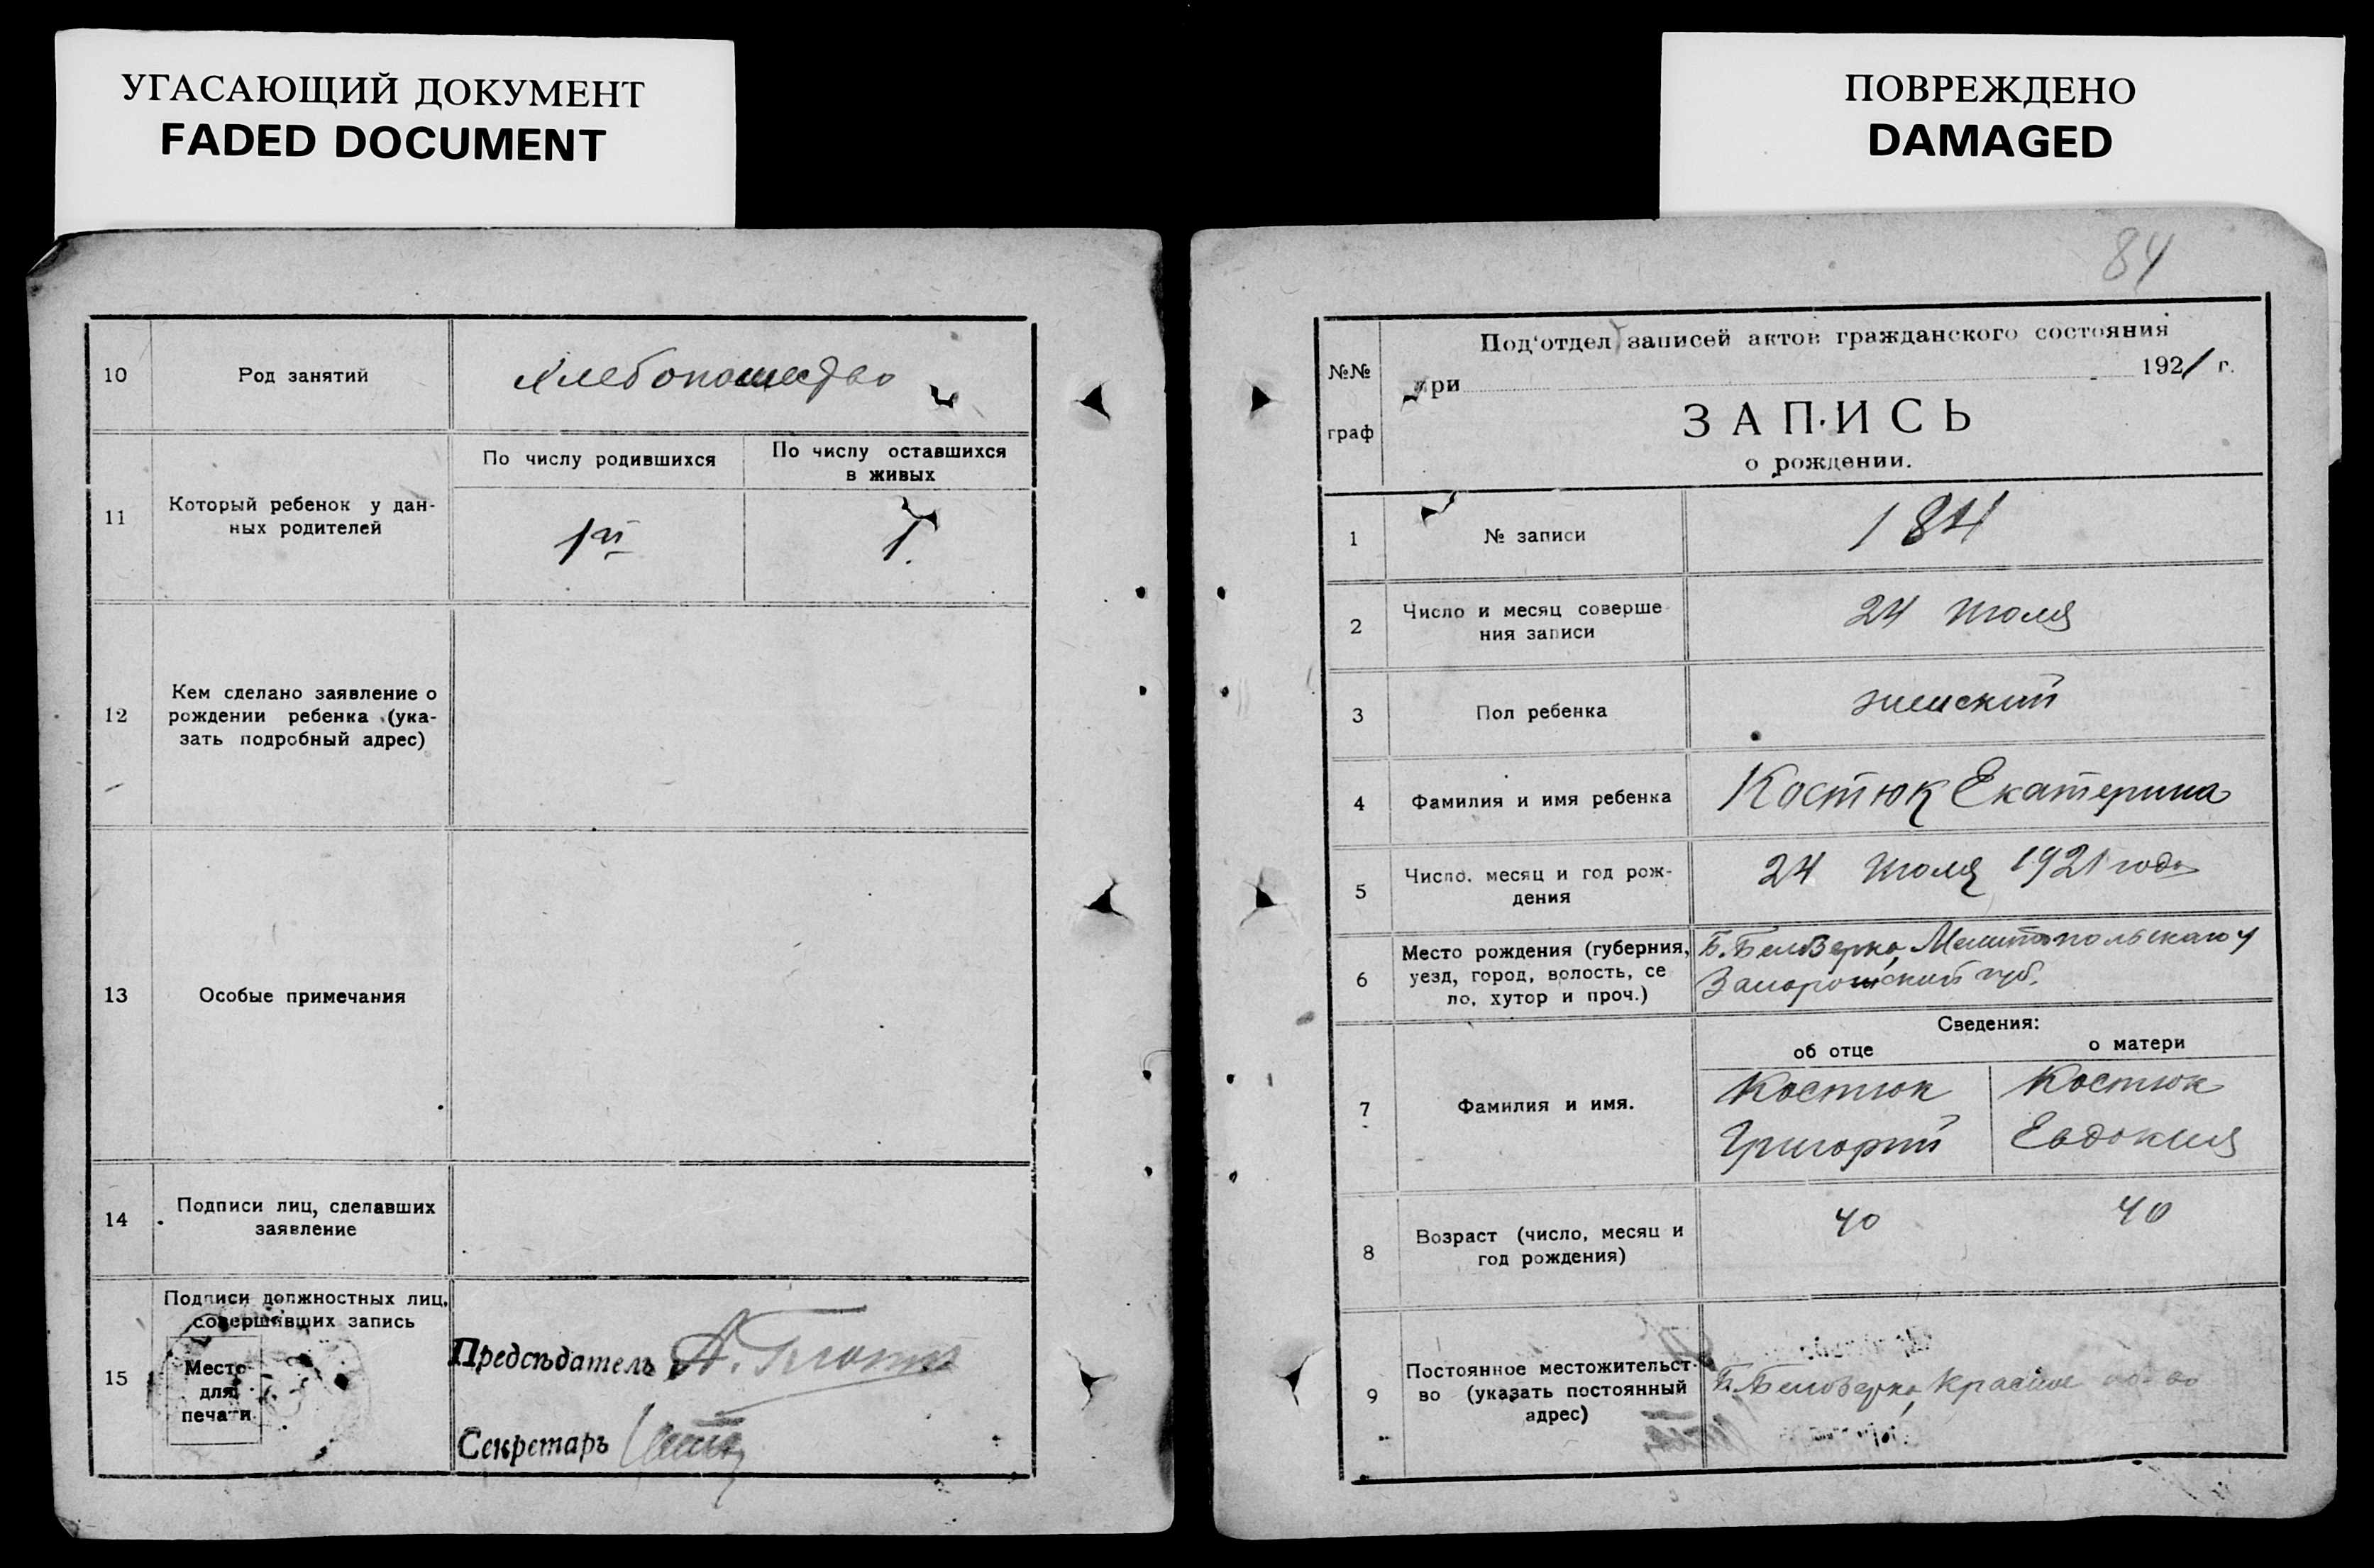 УГАСАЮЩИЙ ДОКУМЕНТ
FADED DOCUMENT
10
Род занятий
Хлебопашество
11
Который ребенок у дан-
ных родителей
По числу родившихся
По числу оставшихся
в живых
1й
1.
12
Кем сделано заявление о
рождении ребенка (ука-
зать подробный адрес)
13
Особые примечания
14
Подписи лиц, сделавших
заявление
15
Подписи должностных лиц,
совершивших запись
Место
для
печати
Председатель А.
Секретарь
ПОВРЕЖДЕНО
DAMAGED
84
№№
граф
Под'отдел записей актов гражданского состояния
при 1921 г.
ЗАПИСЬ
о рождении.
1
№ записи
184
2
Число и месяц соверше
ния записи
24 Июля
3
Пол ребенка
женский
4
Фамилия и имя ребенка
Костюк Екатерина
5
Число, месяц и год рож-
дения
24 Июля 1921 года
6
Место рождения (губерния,
уезд, город, волость, се
ло, хутор и проч.)
Б. Белозерка, Мелитопольскаго у
Запорожский губ.
Сведения:
об отце
о матери
7
Фамилия и имя.
Костюк
Григорий
Костюк
Евдокия
8
Возраст (число, месяц и
год рождения)
40
40
9
Постоянное местожительст-
во (указать постоянный
адрес)
Б. Белозерка, Красное